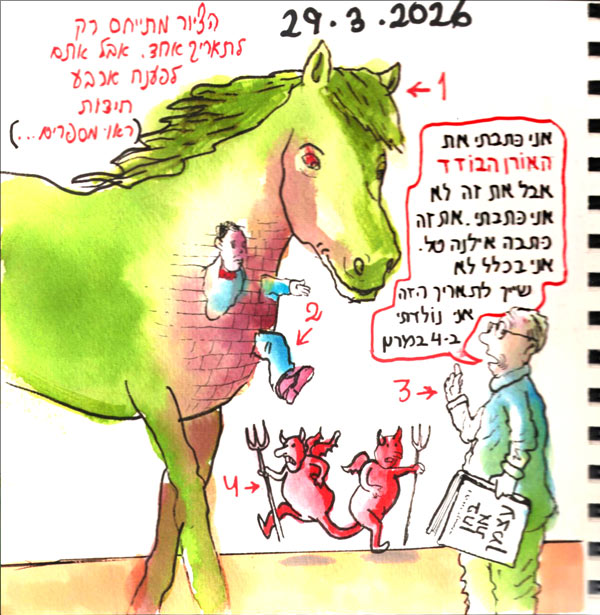 29.3.2026
הציור מתייחס רק
לתאריך אחד. אבל אתם
לפענח ארבע
חידות
(ראו מספרים...)
1
אני כתבתי את
האוֹרן הבוֹדד
אבל את זה לא
אני כתבתי. את זה
כתבה אילנה טל.
אני בכלל לא
שייך לתאריך הזה
אני נוֹלדתי
ב-4 במרץ
2
3
4